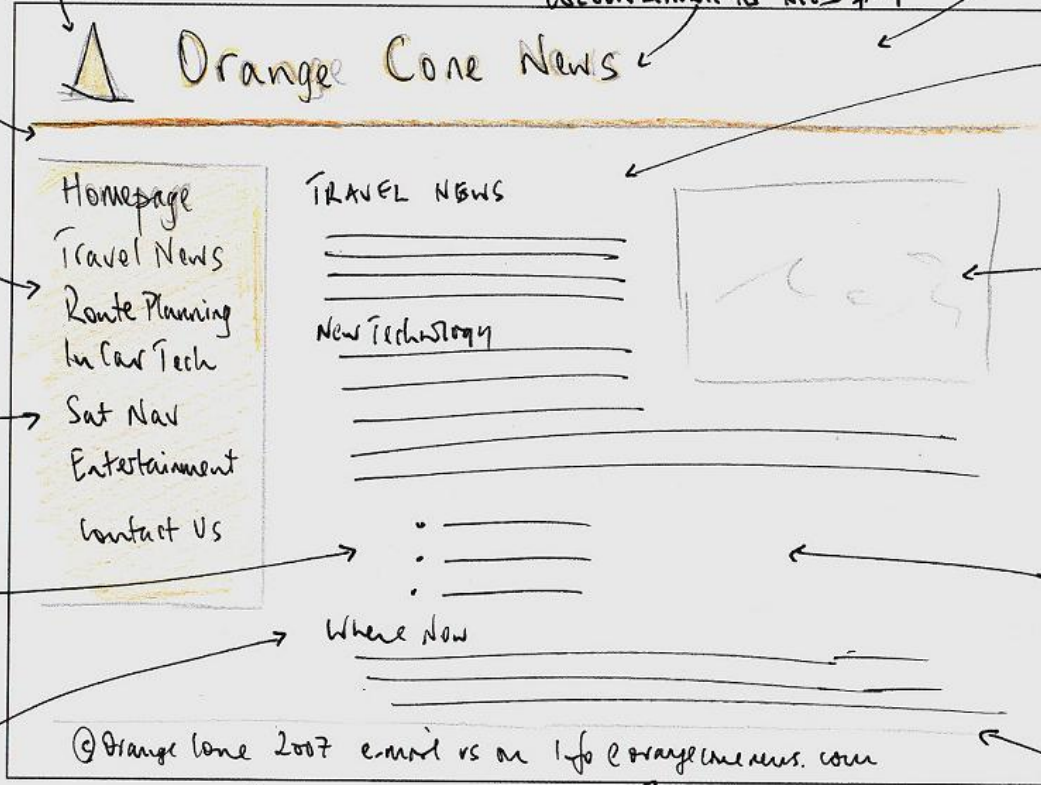 Orange Cone News
TRAVEL NEWS
Homepage
Travel News
Route Planning
In Car Tech
Sat Nav
Entertainment
Contact Us
New Technology
Where Now
© Orange Cone 2007 e-mail us on info@orangeconenews.com